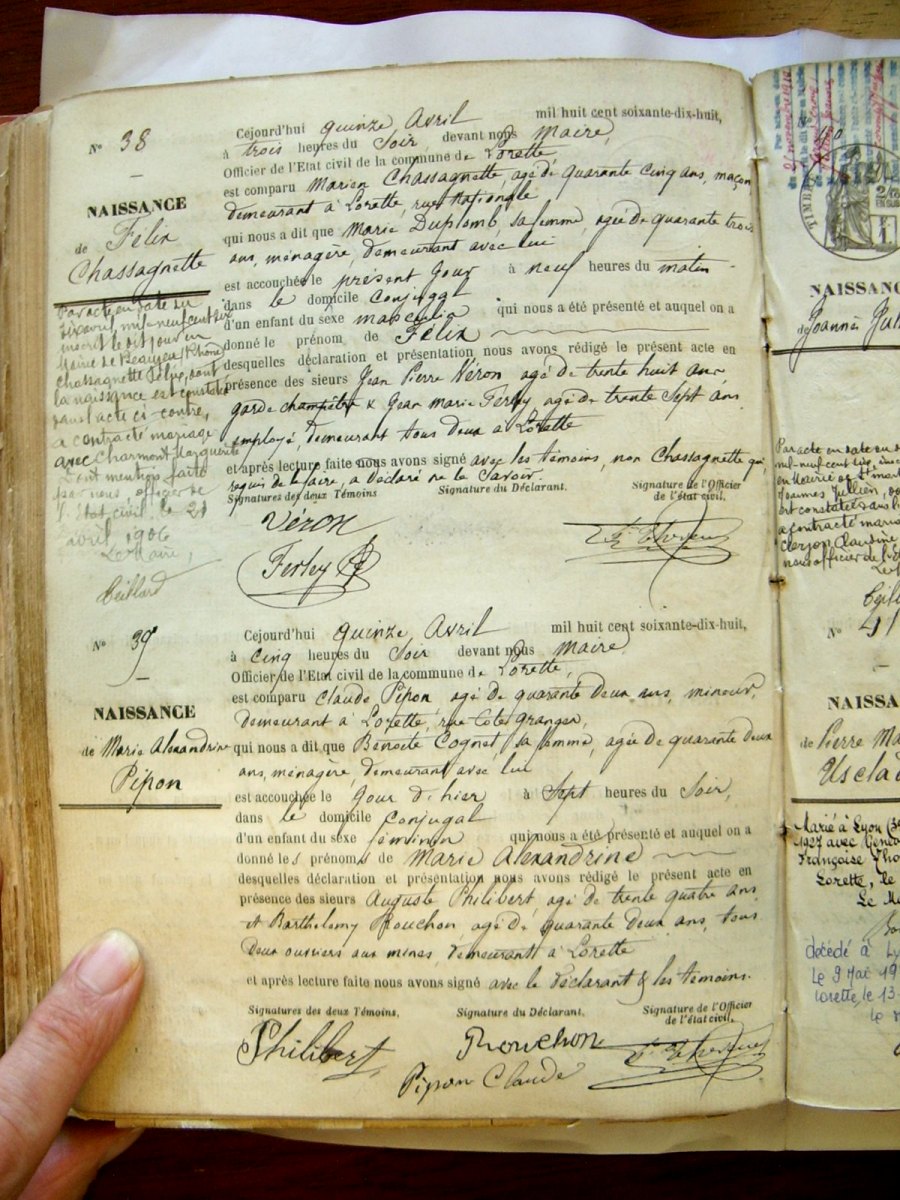 N° 38
NAISSANCE
de Félix
Chassagnette
Par acte en date du
dix avril mil neuf cent six
inscrit le dit jour en
Mairie de Beaujeu (Rhône)
Chassagnette Félix, dont
la naissance est constatée
dans l'acte ci-contre,
a contracté mariage
avec Charmont Marguerite
Dont mention faite
par nous, officier de
l'Etat civil, le 21
avril 1906
Le Maire,
Cejourd'hui quinze Avril mil huit cent soixante-dix-huit,
à trois heures du Soir, devant nous Maire,
Officier de l'Etat civil de la commune de Lorette,
est comparu Marien Chassagnette, agé de quarante cinq ans, maçon
demeurant à Lorette, rue Nationale
qui nous a dit que Marie Duplomb, sa femme, agée de quarante trois
ans, ménagère, demeurant avec lui
est accouchée le présent Jour à neuf heures du matin
dans le domicile conjugal
d'un enfant du sexe masculin qui nous a été présenté et auquel on a
donné le prénom de Félix
desquelles déclaration et présentation nous avons rédigé le présent acte en
présence des sieurs Jean Pierre Véron agé de trente huit ans
garde champêtre & Jean Marie Ferley agé de trente Sept ans
employé, demeurant tous deux à Lorette
et après lecture faite nous avons signé avec les témoins, non Chassagnette qui,
requis de le faire, a déclaré ne le Savoir.
Signatures des deux Témoins Signature du Déclarant. Signature de l'Officier
de l'état civil.
Véron
Ferley
N° 39
NAISSANCE
de Marie Alexandrine
Pipon
Cejourd'hui quinze Avril mil huit cent soixante-dix-huit,
à cinq heures du Soir devant nous Maire
Officier de l'Etat civil de la commune de Lorette,
est comparu Claude Pipon, agé de quarante deux ans, mineur,
demeurant à Lorette, rue Côte Granger,
qui nous a dit que Benoite Cognet, sa femme, agée de quarante deux
ans, ménagère, demeurant avec lui
est accouchée le Jour d'hier à Sept heures du Soir,
dans le domicile conjugal
d'un enfant du sexe féminin qui nous a été présenté et auquel on a
donné les prénoms de Marie Alexandrine
desquelles déclaration et présentation nous avons rédigé le présent acte en
présence des sieurs Auguste Philibert agé de trente quatre ans
et Barthelemy Rouchon, agé de quarante deux ans, tous
deux ouvriers aux mines, demeurant à Lorette
et après lecture faite nous avons signé avec le déclarant & les témoins.
Signatures des deux Témoins. Signature du Déclarant. Signature de l'Officier
de l'état civil.
Philibert Rouchon
Pipon Claude
NAISSANC
de Joannès
Par acte en date du
en Mairie de St
a contracté maria
N° 41
NAISSA
de Pierre Ma
Usclad
Marié à Lyon (3e
1927 avec Genev
Françoise Tho
Lorette, le
Le M
décédé à Ly
le 9 Mai 19
Lorette, le 13
le m